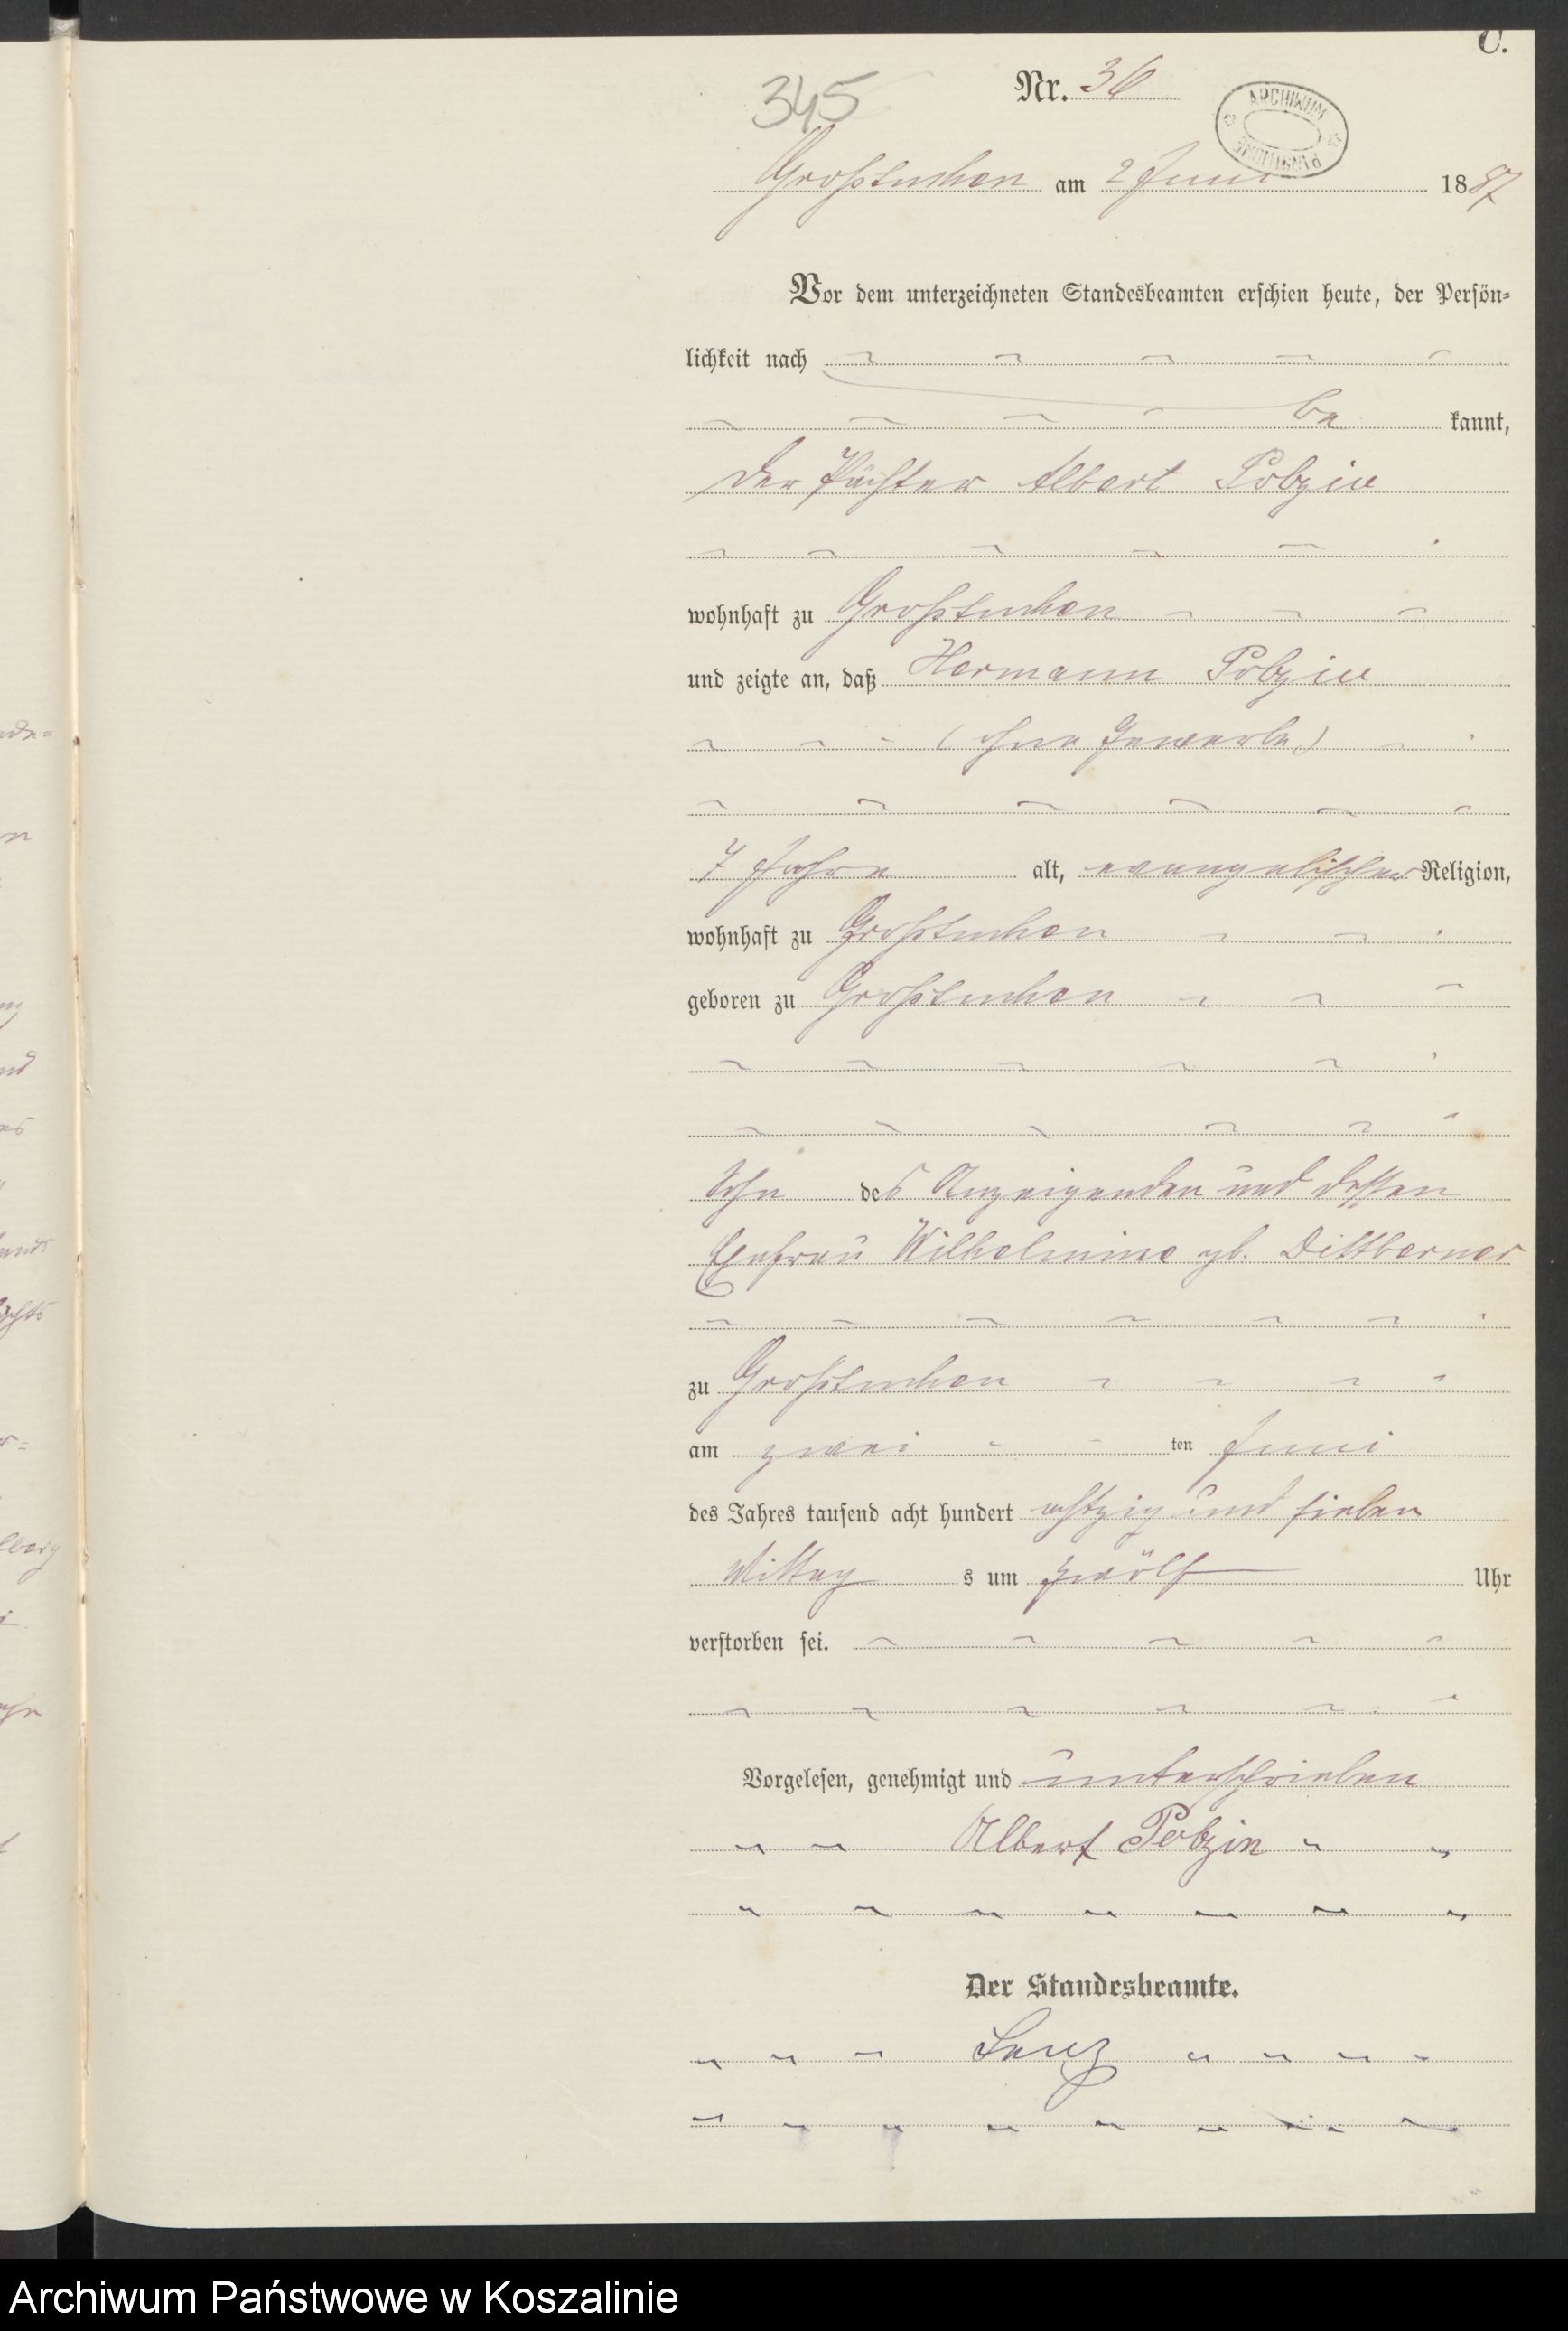 C.
345
Nr. 36
ARCHIWUM PAŃSTWOWE
Großtuchen am 2 Juni 1887
Vor dem unterzeichneten Standesbeamten erschien heute, der Persön=
lichkeit nach
be kannt,
der Pächter Albert Pobzin
wohnhaft zu Großtuchen
und zeigte an, daß Hermann Pobzin
(ohne Gewerbe)
7 Jahre alt, evangelischer Religion,
wohnhaft zu Großtuchen
geboren zu Großtuchen
Sohn des Anzeigenden und dessen
Ehefrau Wilhelmine gb. Dittberner
zu Großtuchen
am zwei ten Juni
des Jahres tausend acht hundert achtzig und sieben
Mittag s um zwölf Uhr
verstorben sei.
Vorgelesen, genehmigt und unterschrieben
Albert Pobzin
Der Standesbeamte.
Lenz
Archiwum Państwowe w Koszalinie